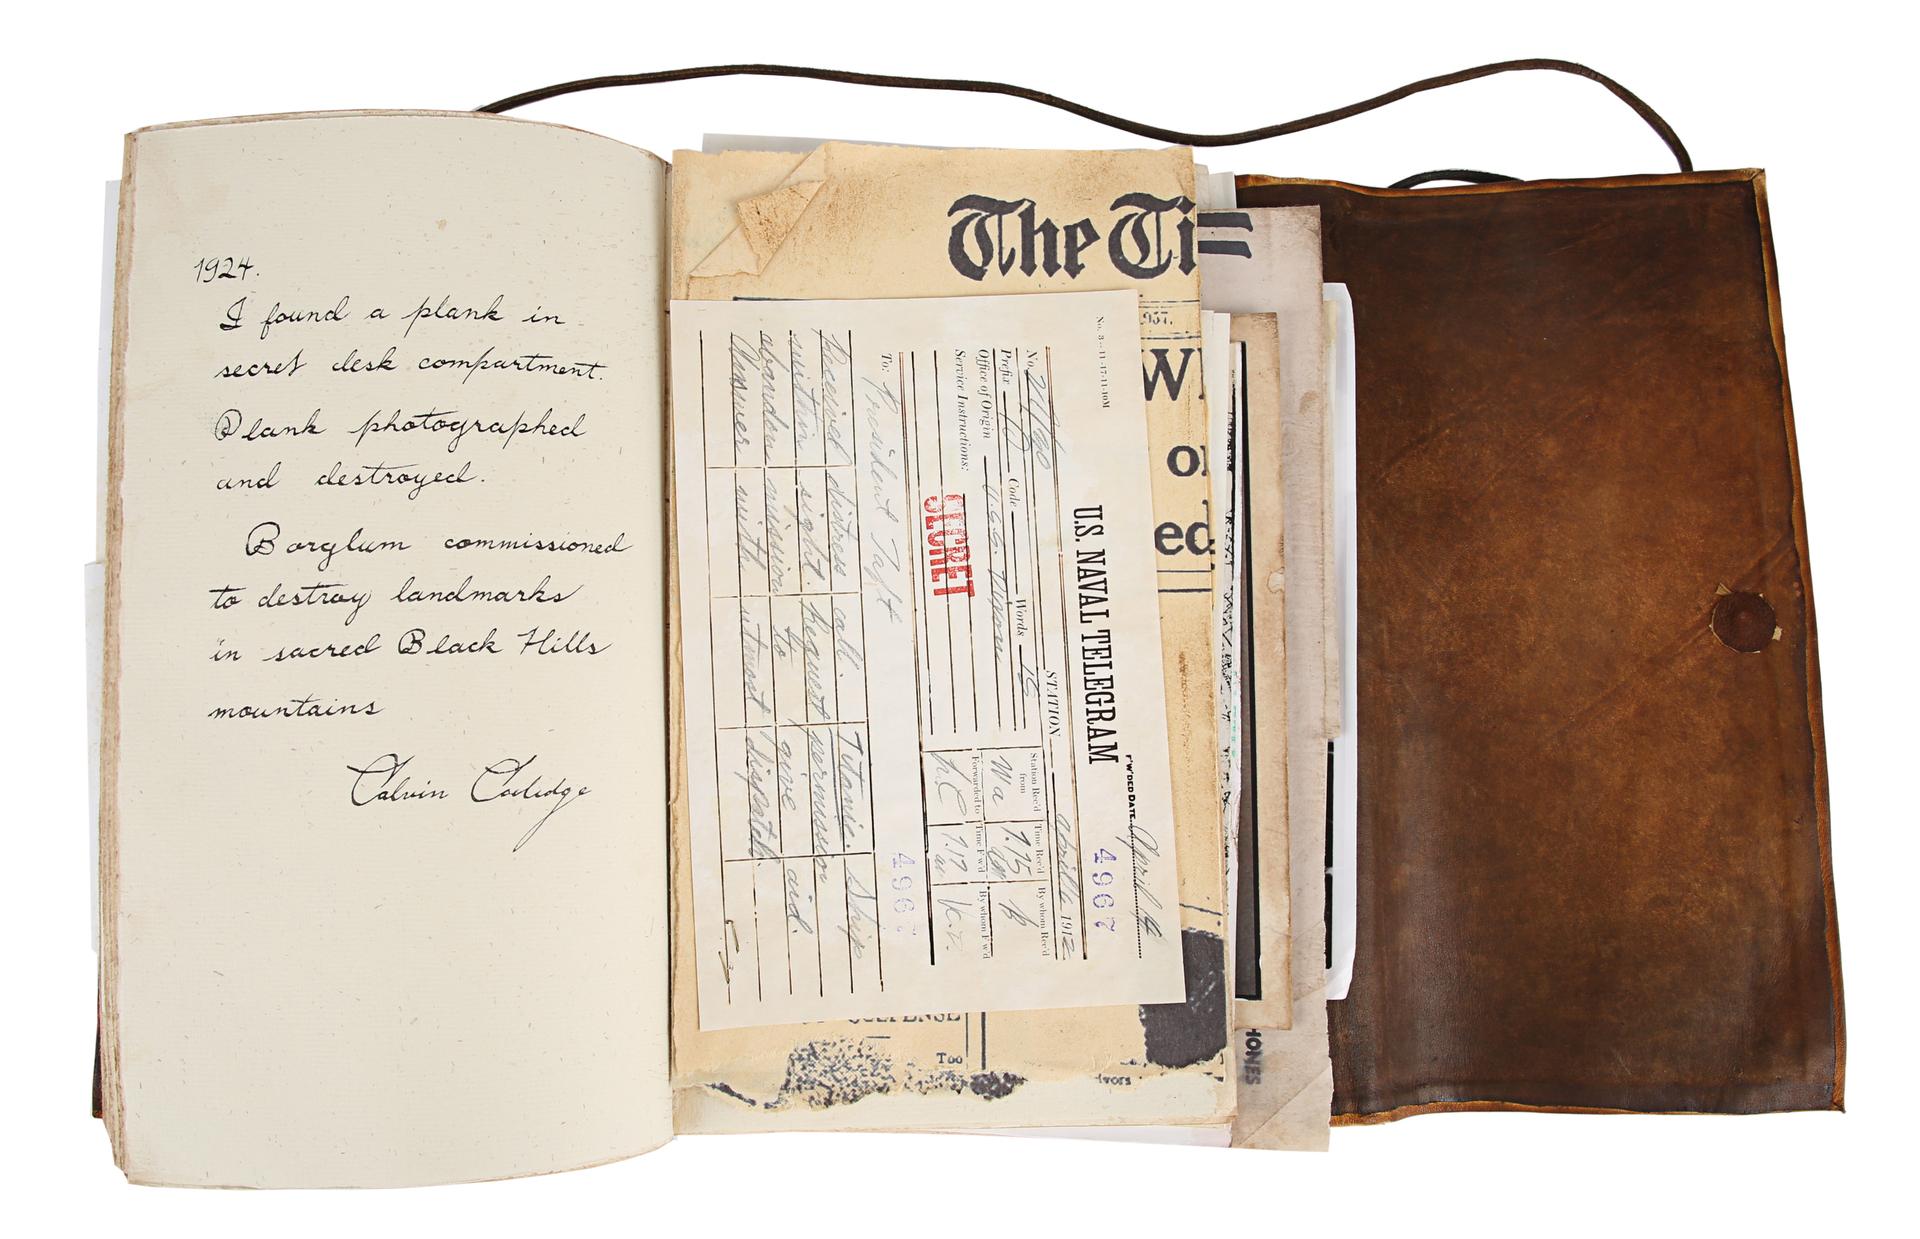 1924.
I found a plank in
secret desk compartment.
Plank photographed
and destroyed.
Borglum commissioned
to destroy landmarks
in sacred Black Hills
mountains
Calvin Coolidge
The Ti
.937.
W
o
ed
No. 3—11-17-11-10M
U.S. NAVAL TELEGRAM
F'W'DED DATE April 14
4967
STATION
1912
No.
Prefix
Code
Words
Office of Origin U.S.S.
Service Instructions:
Station Rec'd from
Time Rec'd
By whom Rec'd
Wa
7.15
Forwarded to
Time F'w'd
By whom F'w'd
7.17
SECRET
4967
To: President Taft
Received distress call. Titanic. Ship
within sight. Request permission
abandon mission to give aid.
Answer with utmost dispatch.
Too
vors
HONES